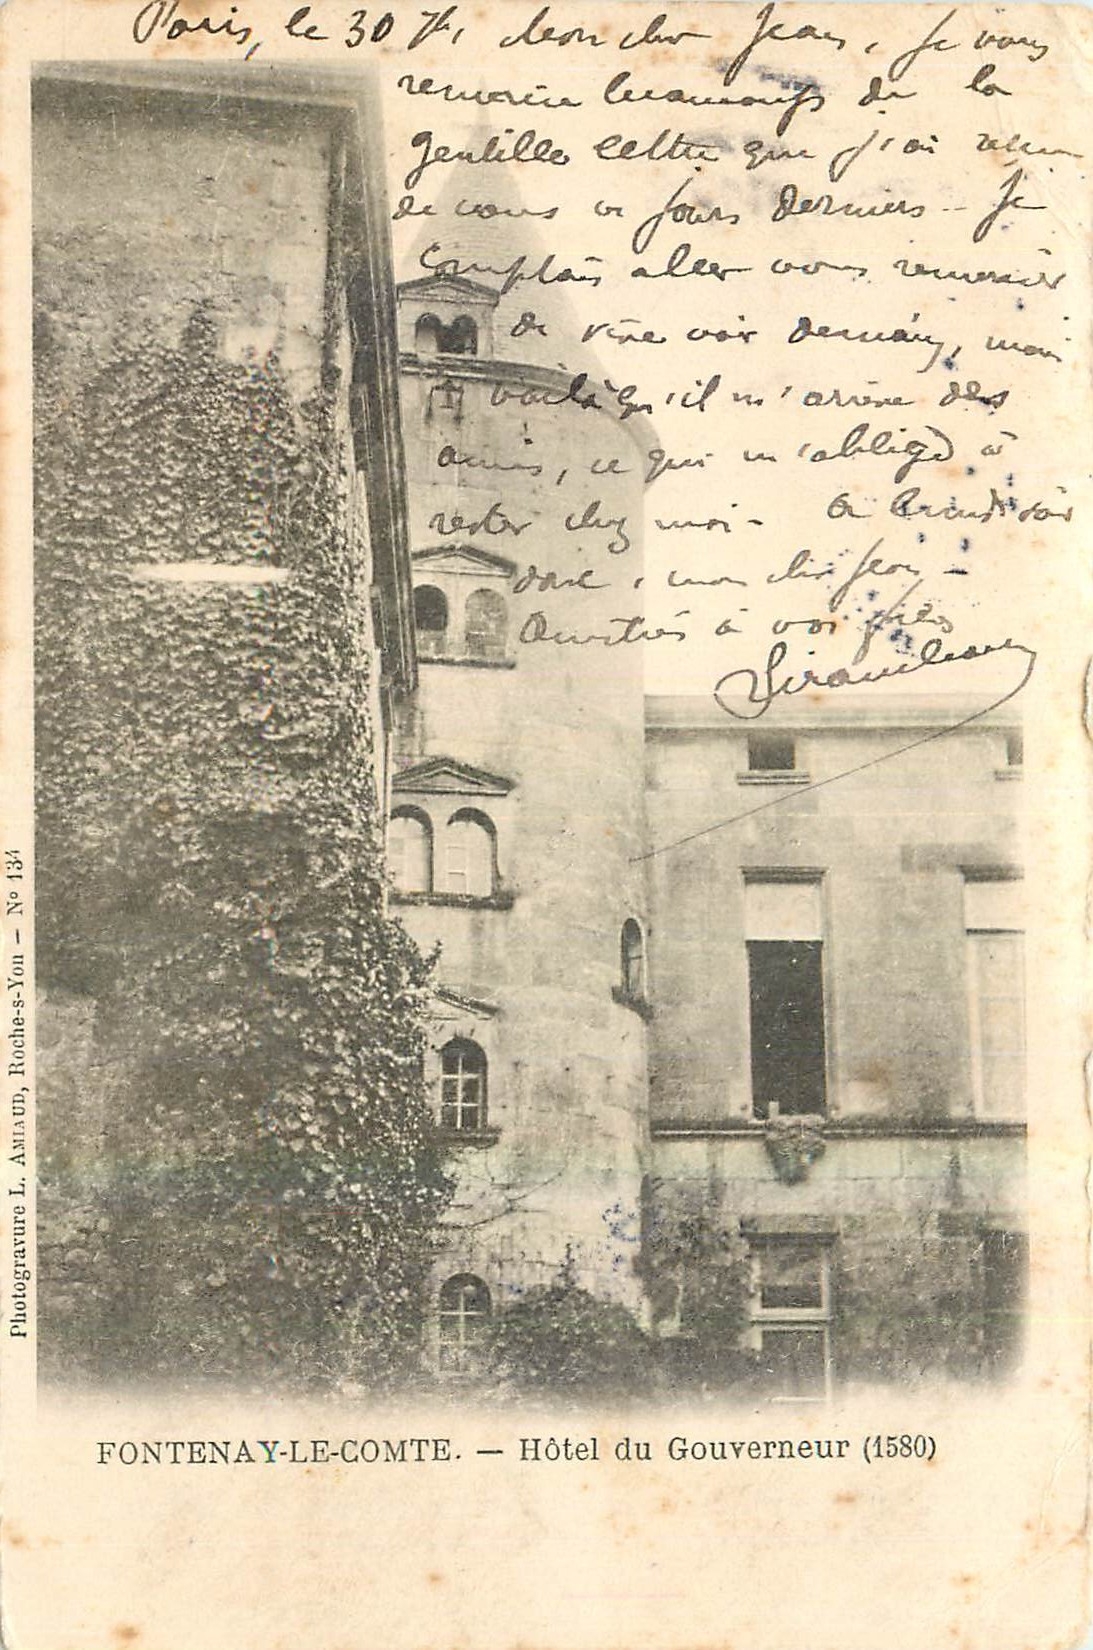 Paris, le 30 7bre, Mon cher Jean, Je vous
remercie beaucoup de la
gentille lettre que j'ai reçue
de vous ces jours derniers - Je
comptais aller vous remercier
de vive voix demain, mais
voilà qu'il m'arrive des
amis, ce qui m'oblige à
rester chez moi - à bientôt
donc, mon cher Jean -
Amitiés à vos frères
Photogravure L. AMIAUD, Roche-s-Yon — No 134
FONTENAY-LE-COMTE. — Hôtel du Gouverneur (1580)